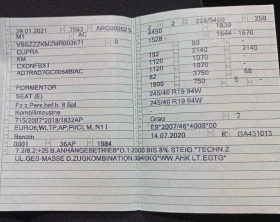 29.01.2021 7593 ARG00002 5
M1 AC
VSSZZZKMZMR003671 0
CUPRA
KM
CXDNFBX1
AD7RAD7GC0064BIAC
FORMENTOR
SEAT (E)
Fz.z.Pers.bef.b. 8 Spl.
Kombilimousine
715/2007*2018/1832AP
EURO6;WLTP;AP;PI/CI; M, N1 I
Benzin
0001 36AP 1984
2 2 228/5450 250
4450 1839
1528 - 1644 1670
80
192 2140 2140
1120 1070
1120 1070
82 3750 68
1800 750 5 -
245/40 R19 94W
245/40 R19 94W
Grau 7
E9*2007/46*4008*00
14.07.2020 K GA431013
7.2/8.2+25 B.ANHÄNGEBETRIEB*O.1:2000 BIS 8% STEIG.*TECHN.Z
UL.GES-MASSE D.ZUGKOMBINATION:3940KG*WW.AHK LT.EGTG*